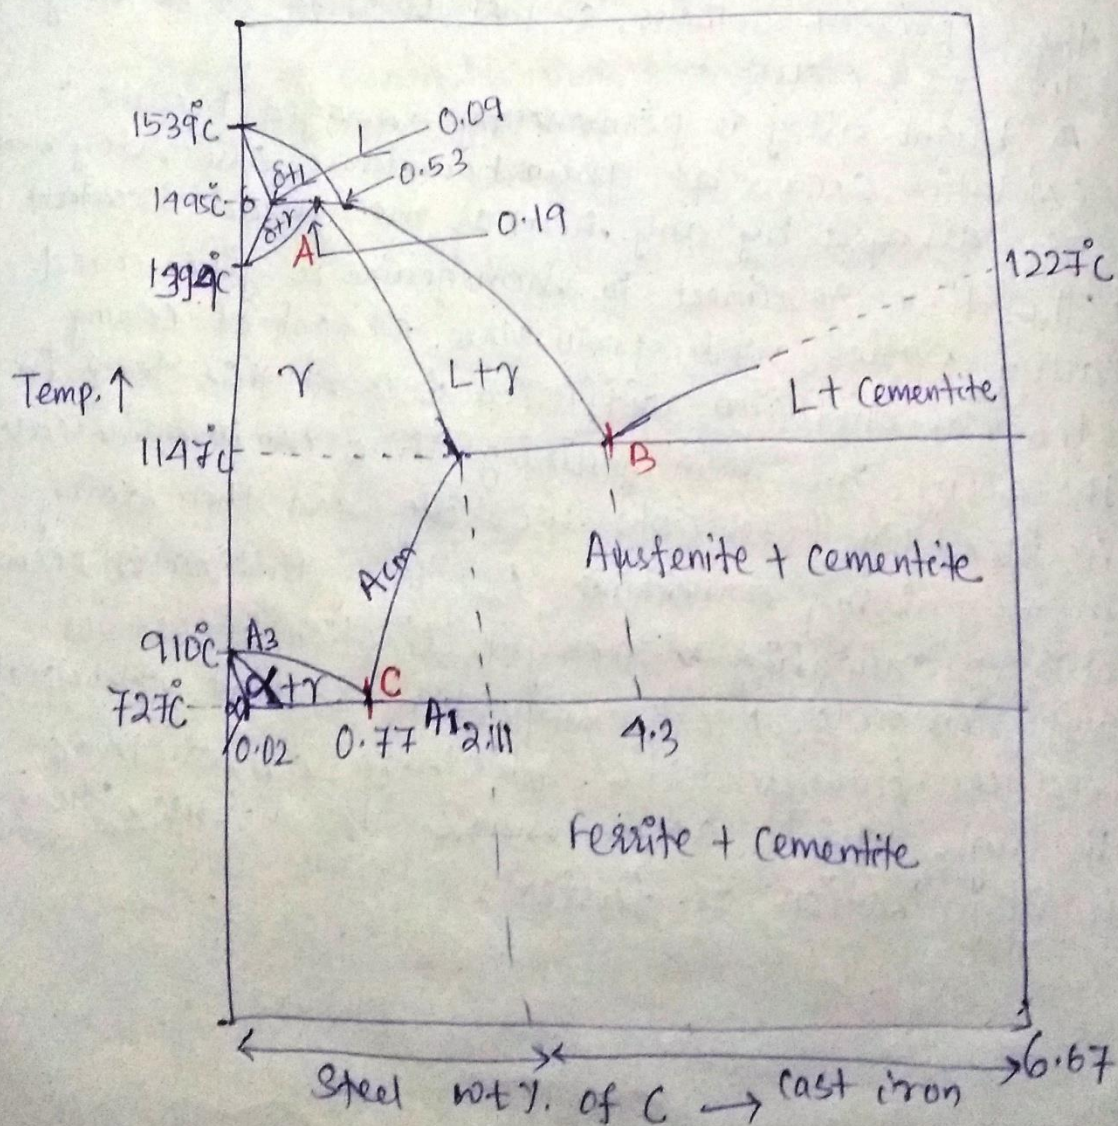 1539°C
L
0.09
δ+L
0.53
1495°C
δ
δ+γ
A
0.19
1394°C
1227°C
Temp. ↑
γ
L+γ
L + Cementite
1147°C
B
Acm
Austenite + cementite
910°C
A3
α+γ
C
727°C
α
0.02
0.77
A1
2.11
4.3
Ferrite + Cementite
6.67
Steel wt%. of C → cast iron